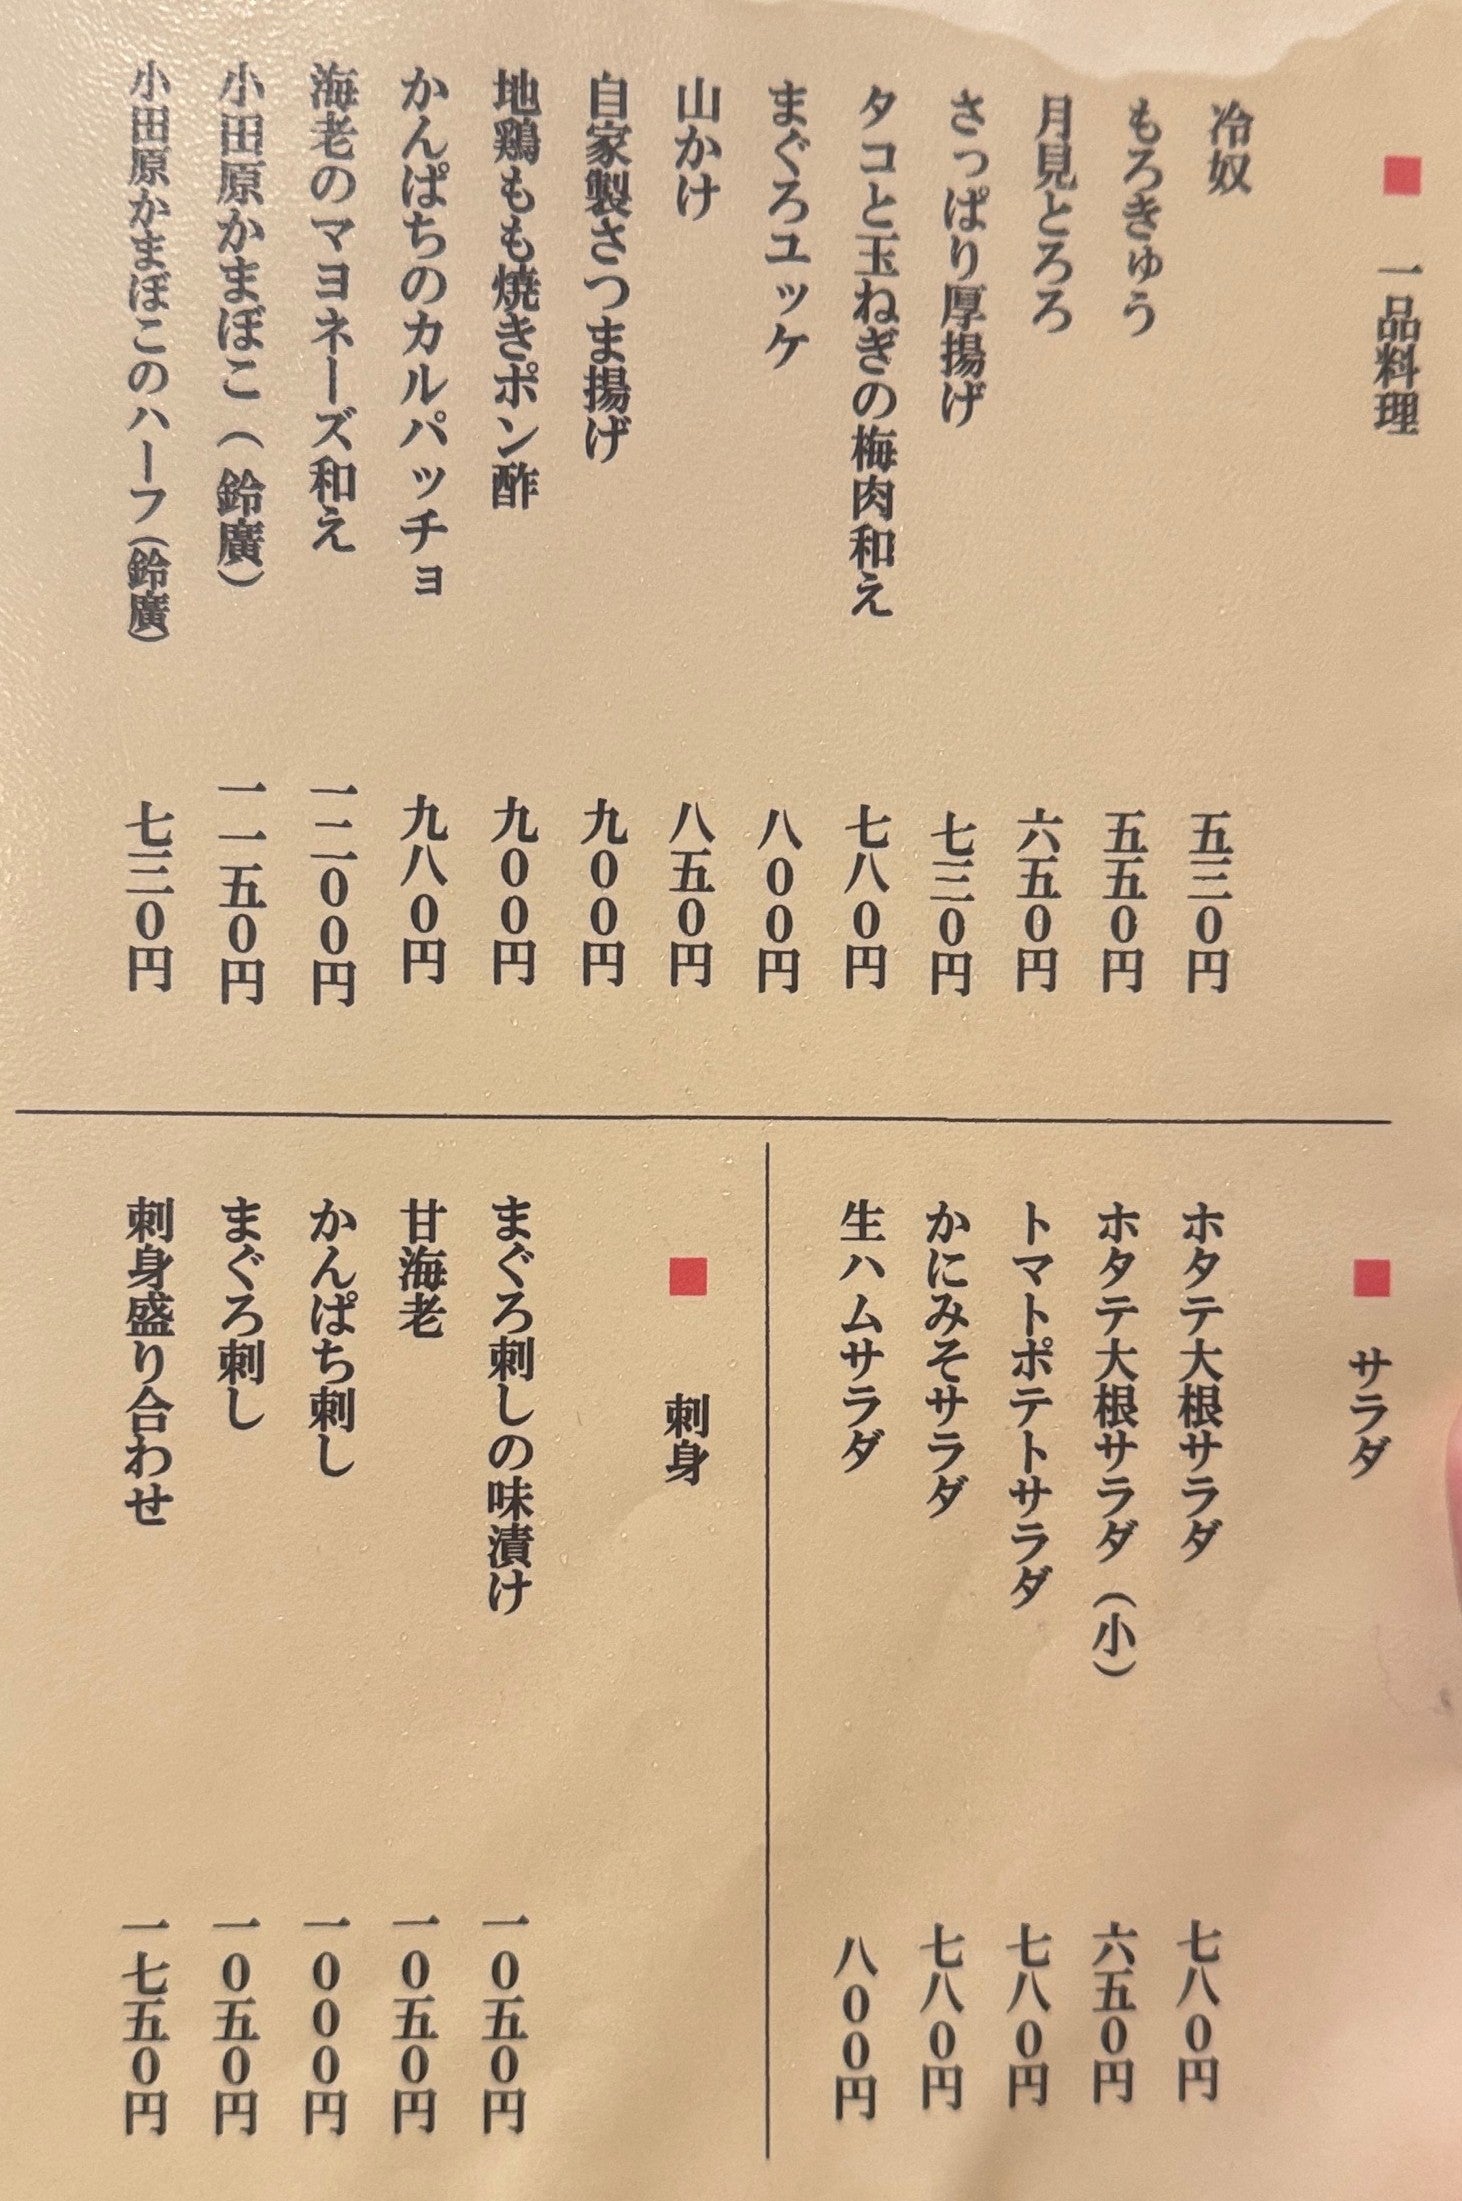 ■ 一品料理
冷奴 五三〇円
もろきゅう 五五〇円
月見とろろ 六五〇円
さっぱり厚揚げ 七三〇円
タコと玉ねぎの梅肉和え 七八〇円
まぐろユッケ 八〇〇円
山かけ 八五〇円
自家製さつま揚げ 九〇〇円
地鶏もも焼きポン酢 九〇〇円
かんぱちのカルパッチョ 九八〇円
海老のマヨネーズ和え 一二〇〇円
小田原かまぼこ（鈴廣） 一一五〇円
小田原かまぼこのハーフ（鈴廣） 七三〇円
■ サラダ
ホタテ大根サラダ 七八〇円
ホタテ大根サラダ（小） 六五〇円
トマトポテトサラダ 七八〇円
かにみそサラダ 七八〇円
生ハムサラダ 八〇〇円
■ 刺身
まぐろ刺しの味漬け 一〇五〇円
甘海老 一〇五〇円
かんぱち刺し 一〇〇〇円
まぐろ刺し 一〇五〇円
刺身盛り合わせ 一七五〇円